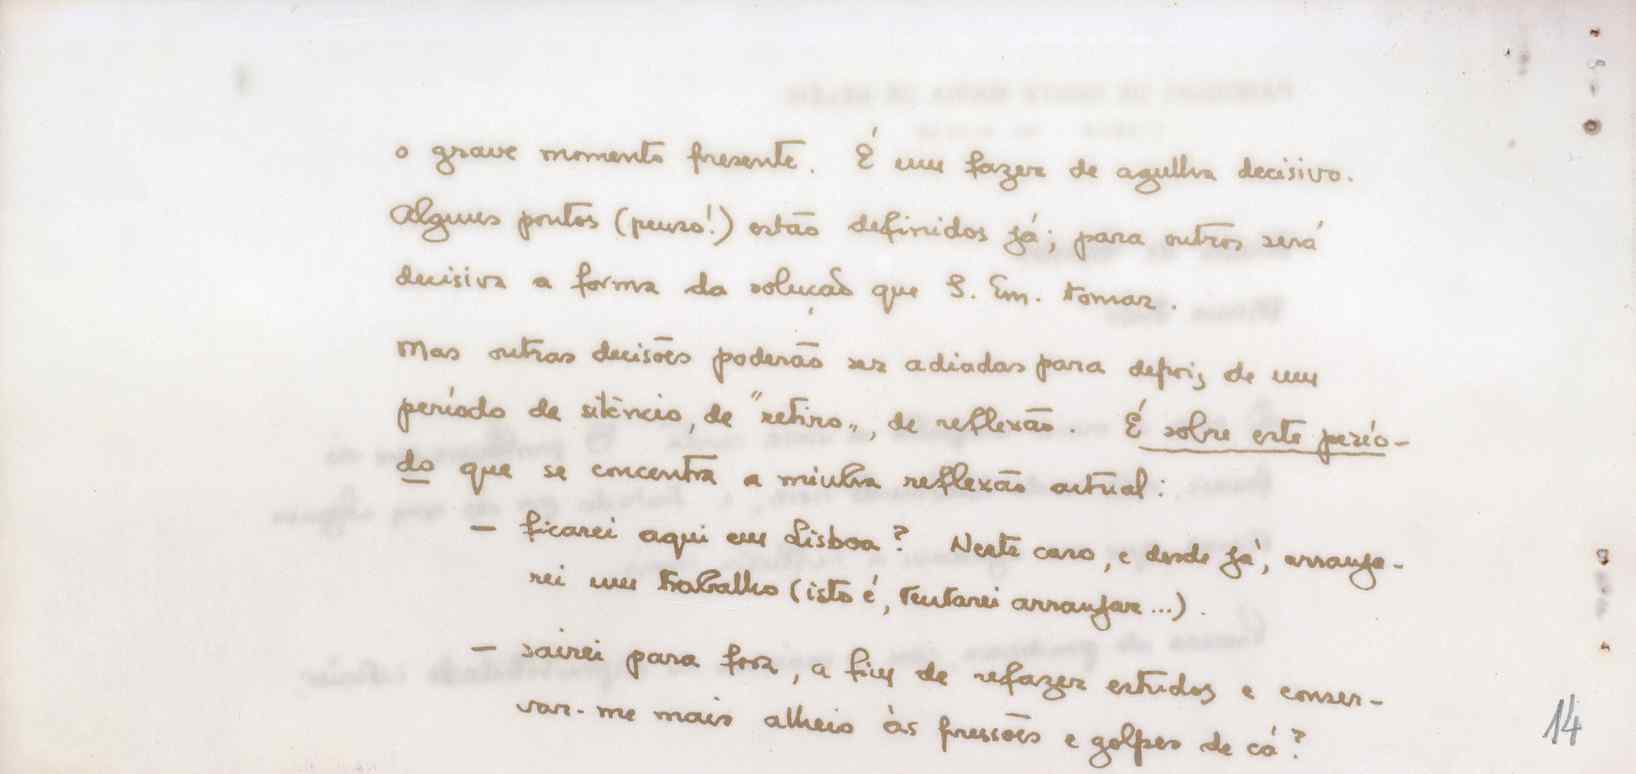 o grave momento presente. É um fazer de agulha decisivo.
Alguns pontos (penso!) estão definidos já; para outros será
decisiva a forma da solução que S. Em. tomar.
Mas outras decisões poderão ser adiadas para depois de um
período de silêncio, de "retiro", de reflexão. É sobre este perío-
do que se concentra a minha reflexão actual:
- ficarei aqui em Lisboa? Neste caso, e desde já, arranja-
rei um trabalho (isto é, tentarei arranjar...).
- sairei para fora, a fim de refazer estudos e conser-
var-me mais alheio às pressões e golpes de cá?
14